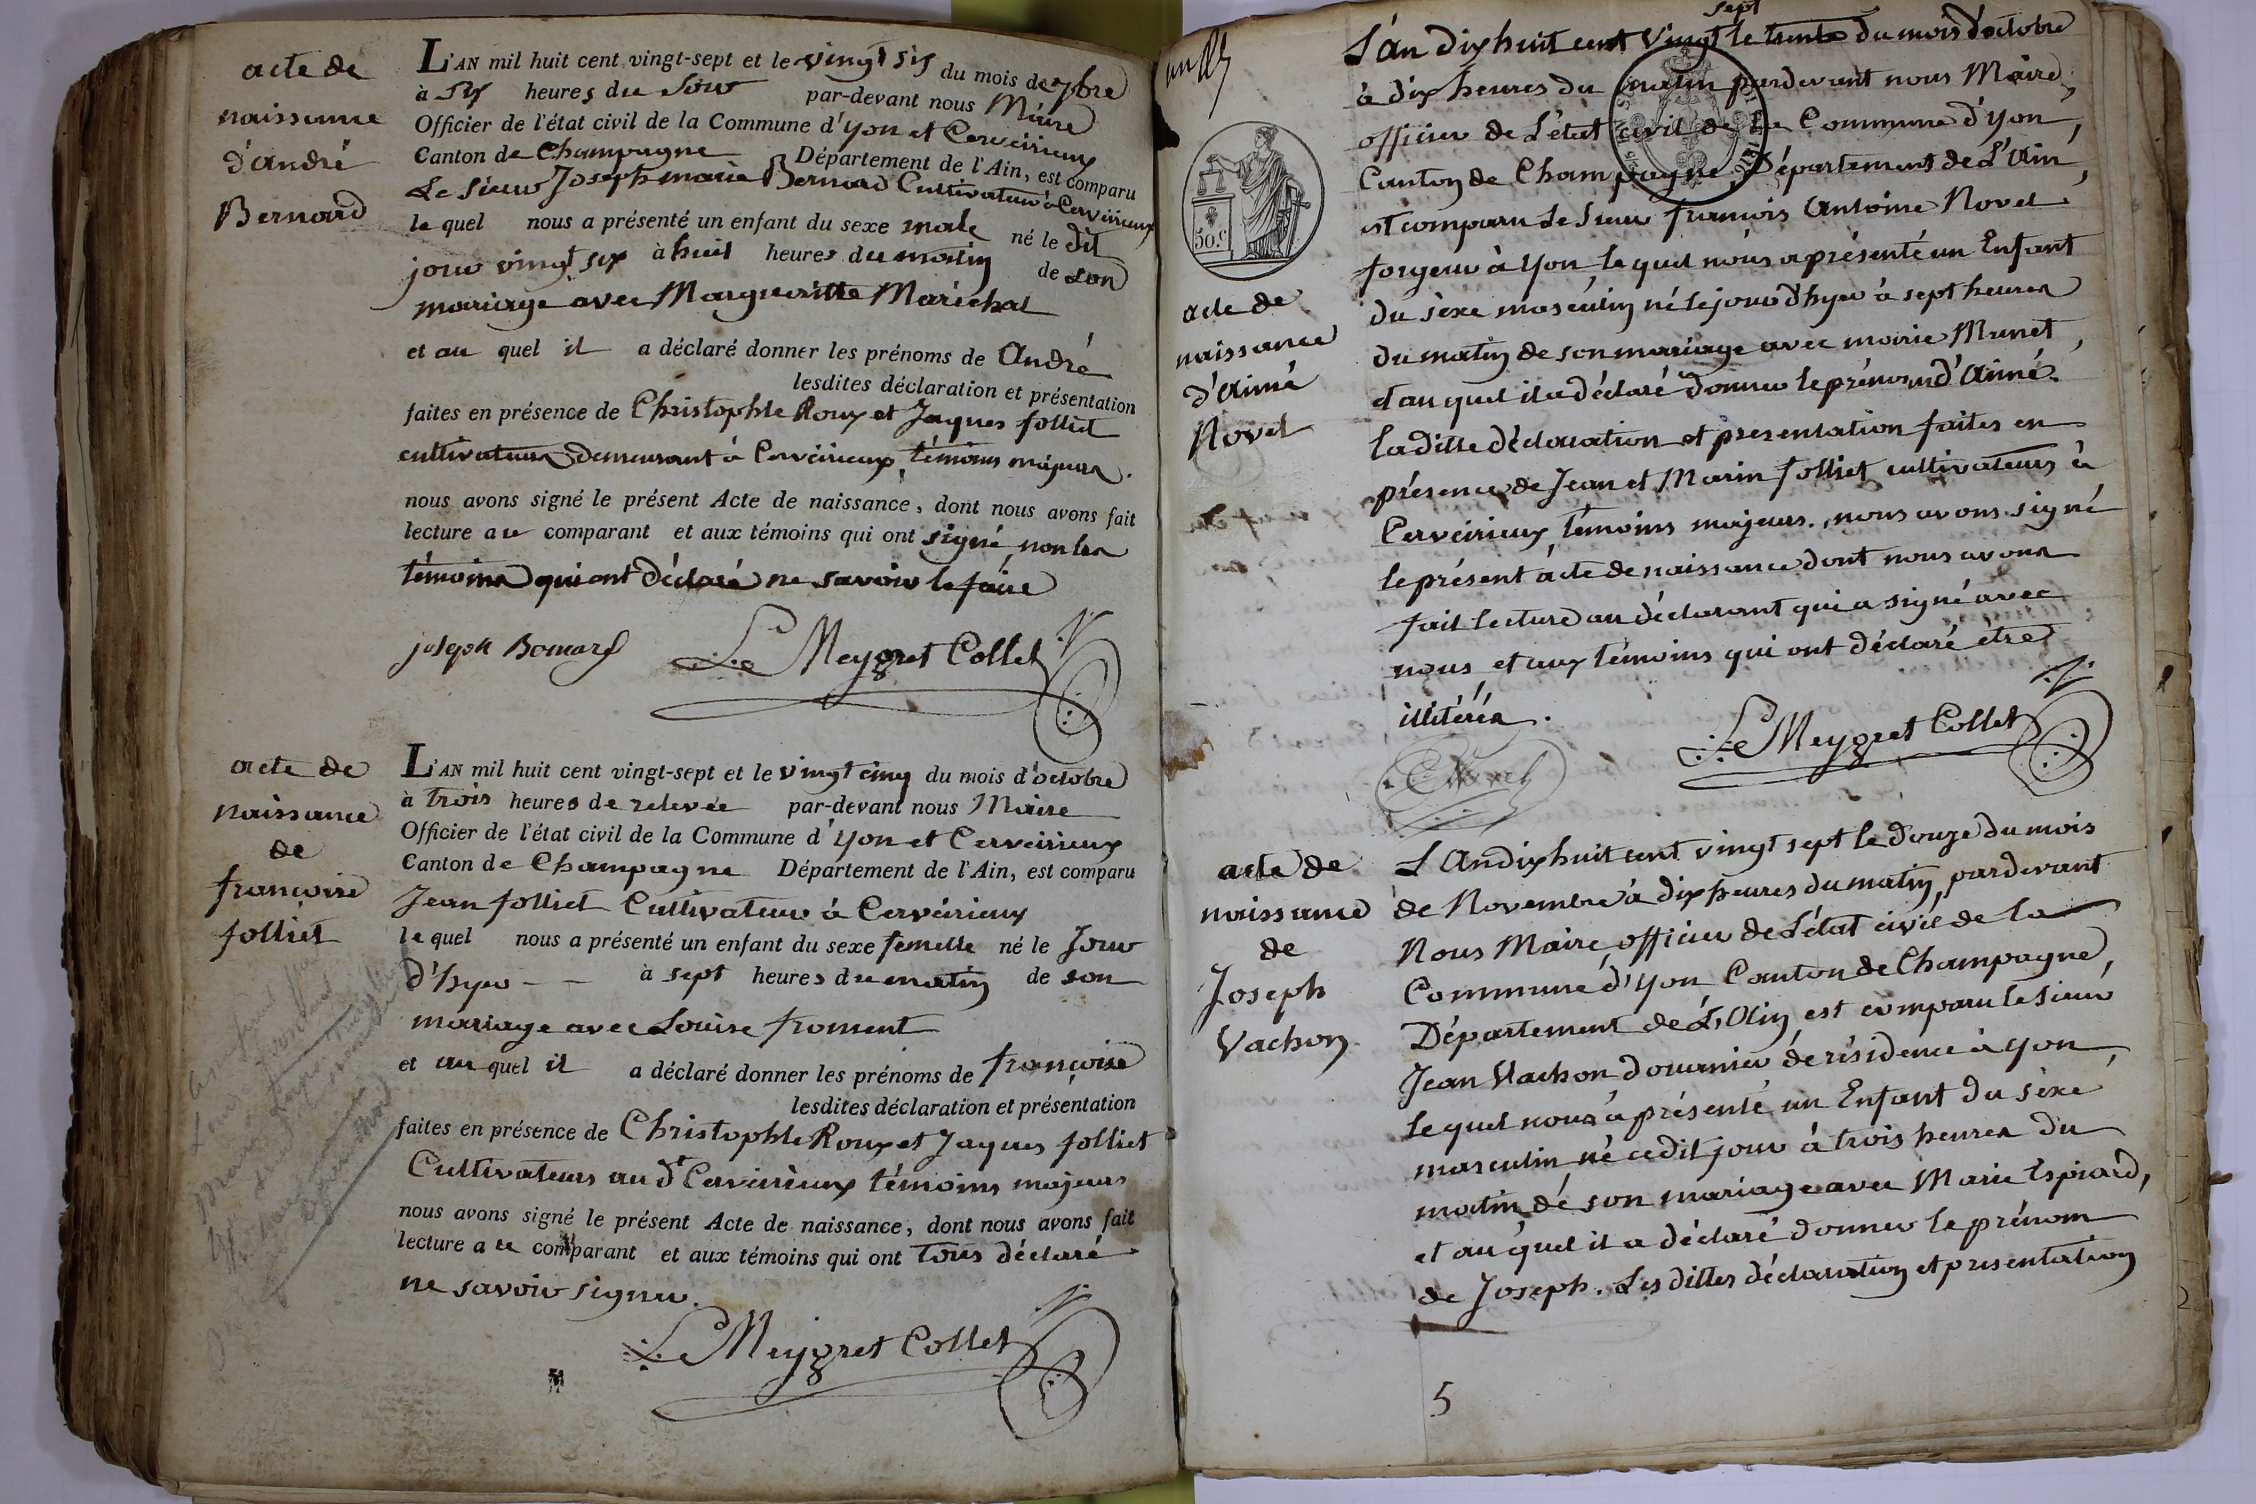 acte de
naissance
d'andré
Bernard
L'AN mil huit cent vingt-sept et le vingt six du mois de 7bre
à six heures du soir par-devant nous Maire
Officier de l'état civil de la Commune d'yon et Cerveirieux
Canton de Champagne Département de l'Ain, est comparu
Le sieur Joseph marie Bernard Cultivateur à Cerveirieux
le quel nous a présenté un enfant du sexe male né le dit
jour vingt six à huit heures du matin de son
mariage avec Margueritte Maréchal
et au quel il a déclaré donner les prénoms de André
lesdites déclaration et présentation
faites en présence de Christophle Roux et Jaques folliet
cultivateurs demeurant à Cerveirieux, témoins majeurs.
nous avons signé le présent Acte de naissance, dont nous avons fait
lecture au comparant et aux témoins qui ont signé, non les
témoins qui ont déclaré ne savoir le faire
joseph Bernard Le Meygret Collet
acte de
naissance
de
françoise
folliet
L'AN mil huit cent vingt-sept et le vingt cinq du mois d'octobre
à trois heures de relevée par-devant nous Maire
Officier de l'état civil de la Commune d'yon et Cerveirieux
Canton de Champagne Département de l'Ain, est comparu
Jean folliet Cultivateur à Cerveirieux
le quel nous a présenté un enfant du sexe femelle né le Jour
d'hyer - - à sept heures du matin de son
mariage avec Louise froment
et au quel il a déclaré donner les prénoms de françoise
lesdites déclaration et présentation
faites en présence de Christophle Roux et Jaques folliet
Cultivateurs au dt Cerveirieux témoins majeurs
nous avons signé le présent Acte de naissance, dont nous avons fait
lecture au comparant et aux témoins qui ont tous déclaré
ne savoir signer.
Le Meygret Collet
50.c
acte de
naissance
d'aimé
Novel
sept
L'an dix huit cent vingt le trente du mois d'octobre
à dix heures du matin pardevant nous Maire,
officier de L'état civil de la Commune d'yon,
Canton de Champagne, Département de L'ain,
est comparu Le Sieur françois Antoine Novel
forgeur à yon lequel nous a présenté un Enfant
du sèxe masculin né le jour d'hyer à sept heures
du matin de son mariage avec marie Munet,
et au quel il a déclaré donner le prénom d'aimé.
laditte déclaration et presentation faites en
présence de Jean et Marin folliet cultivateurs à
Cerveirieux, témoins majeurs., nous avons signé
le présent acte de naissance dont nous avons
fait lecture au déclarant qui a signé avec
nous et aux témoins qui ont déclaré être
illitérés.
Le Meygret Collet
acte de
naissance
de
Joseph
Vachon
L'An dix huit cent vingt sept le douze du mois
de Novembre à dix heures du matin, pardevant
Nous Maire, officier de L'état civil de la
Commune d'yon Canton de Champagne,
Département de L'Ain, est comparu le sieur
Jean Vachon douanier de résidence à yon,
lequel nous a présenté un Enfant du sèxe
masculin né cedit jour à trois heures du
matin de son mariage avec Marie Espiard,
et au quel il a déclaré donner le prénom
de Joseph. Les dittes déclaration et presentation
5